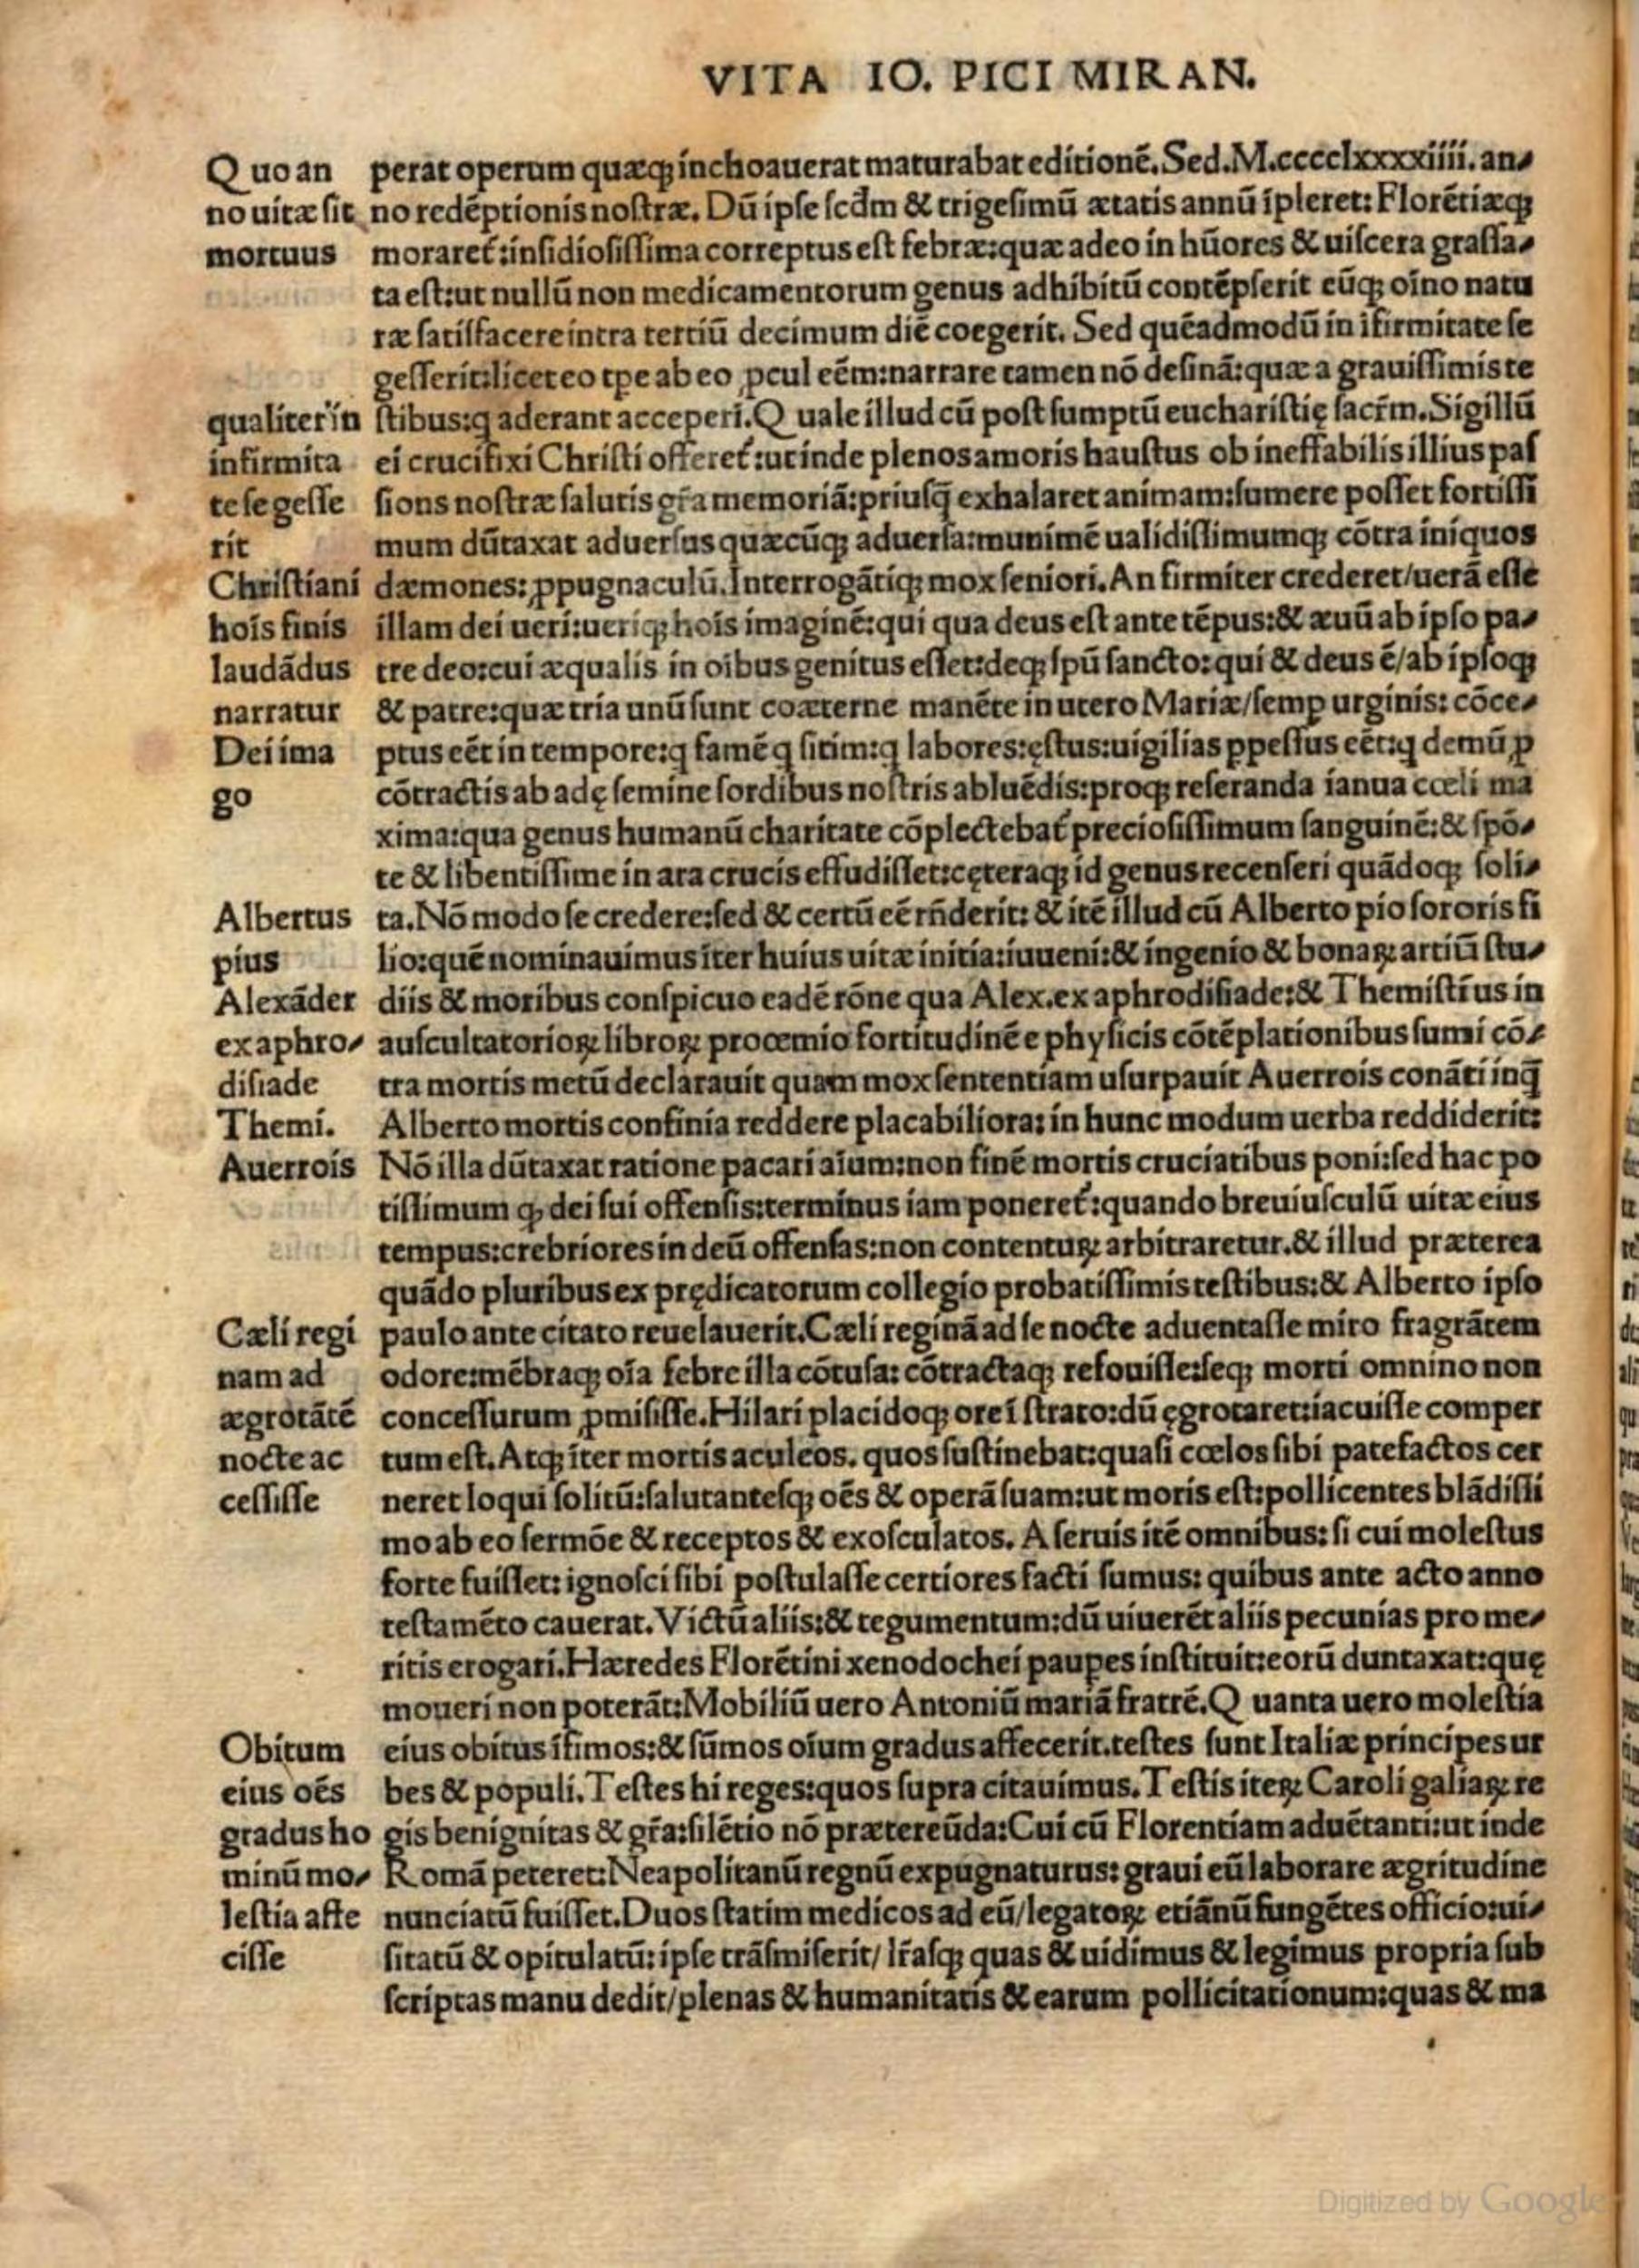 VITA IO. PICI MIRAN.
Quo an
no uitæ sit
mortuus
qualiter in
infirmita
te se gesse
rit
Christiani
hoīs finis
laudādus
narratur
Dei ima
go
Albertus
pius
Alexāder
ex aphro⸗
disiade
Themi.
Auerrois
Cæli regi
nam ad
ægrotātē
nocte ac
cessisse
Obitum
eius oēs
gradus ho
minū mo⸗
lestia affe
cisse
perat operum quæqꝫ inchoauerat maturabat editionē. Sed. M.cccclxxxxiiii. an⸗
no redēptionis nostræ. Dū ipse scd̄m & trigesimū ætatis annū īpleret: Florētiæqꝫ
moraret᷑: insidiosissima correptus est febræ: quæ adeo in hūores & uiscera grassa⸗
ta est: ut nullū non medicamentorum genus adhibitū contēpserit eūqꝫ oīno natu
ræ satisfacere intra tertiū decimum diē coegerit. Sed quēadmodū in īfirmitate se
gesserit: licet eo tꝑe ab eo ꝓcul eēm: narrare tamen nō desinā: quæ a grauissimis te
stibus: q aderant acceperī. Quale illud cū post sumptū eucharistię sacr̄m. Sigillū
ei crucifixi Christi offeret᷑: ut inde plenos amoris haustus ob ineffabilis illius pas
sions nostræ salutis gr̄a memoriā: priusq̄ exhalaret animam: sumere posset fortissi
mum dūtaxat aduersus quæcūqꝫ aduersa: munimē ualidissimumqꝫ cōtra iniquos
dæmones: ꝓpugnaculū. Interrogātiqꝫ mox seniori. An firmiter crederet/uerā esse
illam dei ueri: ueriqꝫ hoīs imaginē: qui qua deus est ante tēpus: & æuū ab ipso pa⸗
tre deo: cui æqualis in oībus genitus esset: deqꝫ spū sancto: qui & deus ē/ab ipsoqꝫ
& patre: quæ tria unū sunt coæterne manēte in utero Mariæ/semꝑ urginis: cōce⸗
ptus eēt in tempore: q famē q sitim: q labores: ęstus: uigilias ꝑpessus eēt: q demū ꝓ
cōtractis ab adę semine sordibus nostris abluēdis: proqꝫ reseranda ianua cœli ma
xima: qua genus humanū charitate cōplectebat᷑ preciosissimum sanguinē: & spō⸗
te & libentissime in ara crucis effudisset: cęteraqꝫ id genus recenseri quādoqꝫ soli⸗
ta. Nō modo se credere: sed & certū eē rn̄derit: & itē illud cū Alberto pio sororis fi
lio: quē nominauimus īter huius uitæ initia: iuueni: & ingenio & bonaꝝ artiū stu⸗
diis & moribus conspicuo eadē rōne qua Alex. ex aphrodisiade: & Themistīus in
auscultatorioꝝ libroꝝ proœmio fortitudinē e physicis cōtēplationibus sumi cō⸗
tra mortis metū declarauit quam mox sententiam usurpauit Auerrois conāti inq̄
Alberto mortis confinia reddere placabiliora: in hunc modum uerba reddiderit:
Nō illa dūtaxat ratione pacari aīum: non finē mortis cruciatibus poni: sed hac po
tissimum ꝙ dei sui offensis: terminus iam poneret᷑: quando breuiusculū uitæ eius
tempus: crebriores in deū offensas: non contentuꝝ arbitraretur. & illud præterea
quādo pluribus ex prędicatorum collegio probatissimis testibus: & Alberto ipso
paulo ante citato reuelauerit. Cæli reginā ad se nocte aduentasse miro fragrātem
odore: mēbraqꝫ oīa febre illa cōtusa: cōtractaqꝫ refouisse: seqꝫ morti omnino non
concessurum ꝓmisisse. Hilari placidoqꝫ ore ī strato: dū ęgrotaret: iacuisse comper
tum est. Atqꝫ īter mortis aculeos. quos sustinebat: quasi cœlos sibi patefactos cer
neret loqui solitū: salutantesqꝫ oēs & operā suam: ut moris est: pollicentes blādissi
mo ab eo sermōe & receptos & exosculatos. A seruis itē omnibus: si cui molestus
forte fuisset: ignosci sibi postulasse certiores facti sumus: quibus ante acto anno
testamēto cauerat. Victū aliis: & tegumentum: dū uiuerēt aliis pecunias pro me⸗
ritis erogari. Hæredes Florētini xenodochei pauꝑes instituit: eorū duntaxat: quę
moueri non poterāt: Mobiliū uero Antoniū mariā fratrē. Quanta uero molestia
eius obitus īfimos: & sūmos oīum gradus affecerit. testes sunt Italiæ principes ur
bes & populi. Testes hi reges: quos supra citauimus. Testis iteꝝ Caroli galiaꝝ re
gis benignitas & gr̄a: silētio nō prætereūda: Cui cū Florentiam aduētanti: ut inde
Romā peteret: Neapolitanū regnū expugnaturus: graui eū laborare ægritudine
nunciatū fuisset. Duos statim medicos ad eū/legatoꝝ etiānū fungētes officio: ui⸗
sitatū & opitulatū: ipse trāsmiserit/ lr̄asqꝫ quas & uidimus & legimus propria sub
scriptas manu dedit/plenas & humanitatis & earum pollicitationum: quas & ma
Digitized by Google